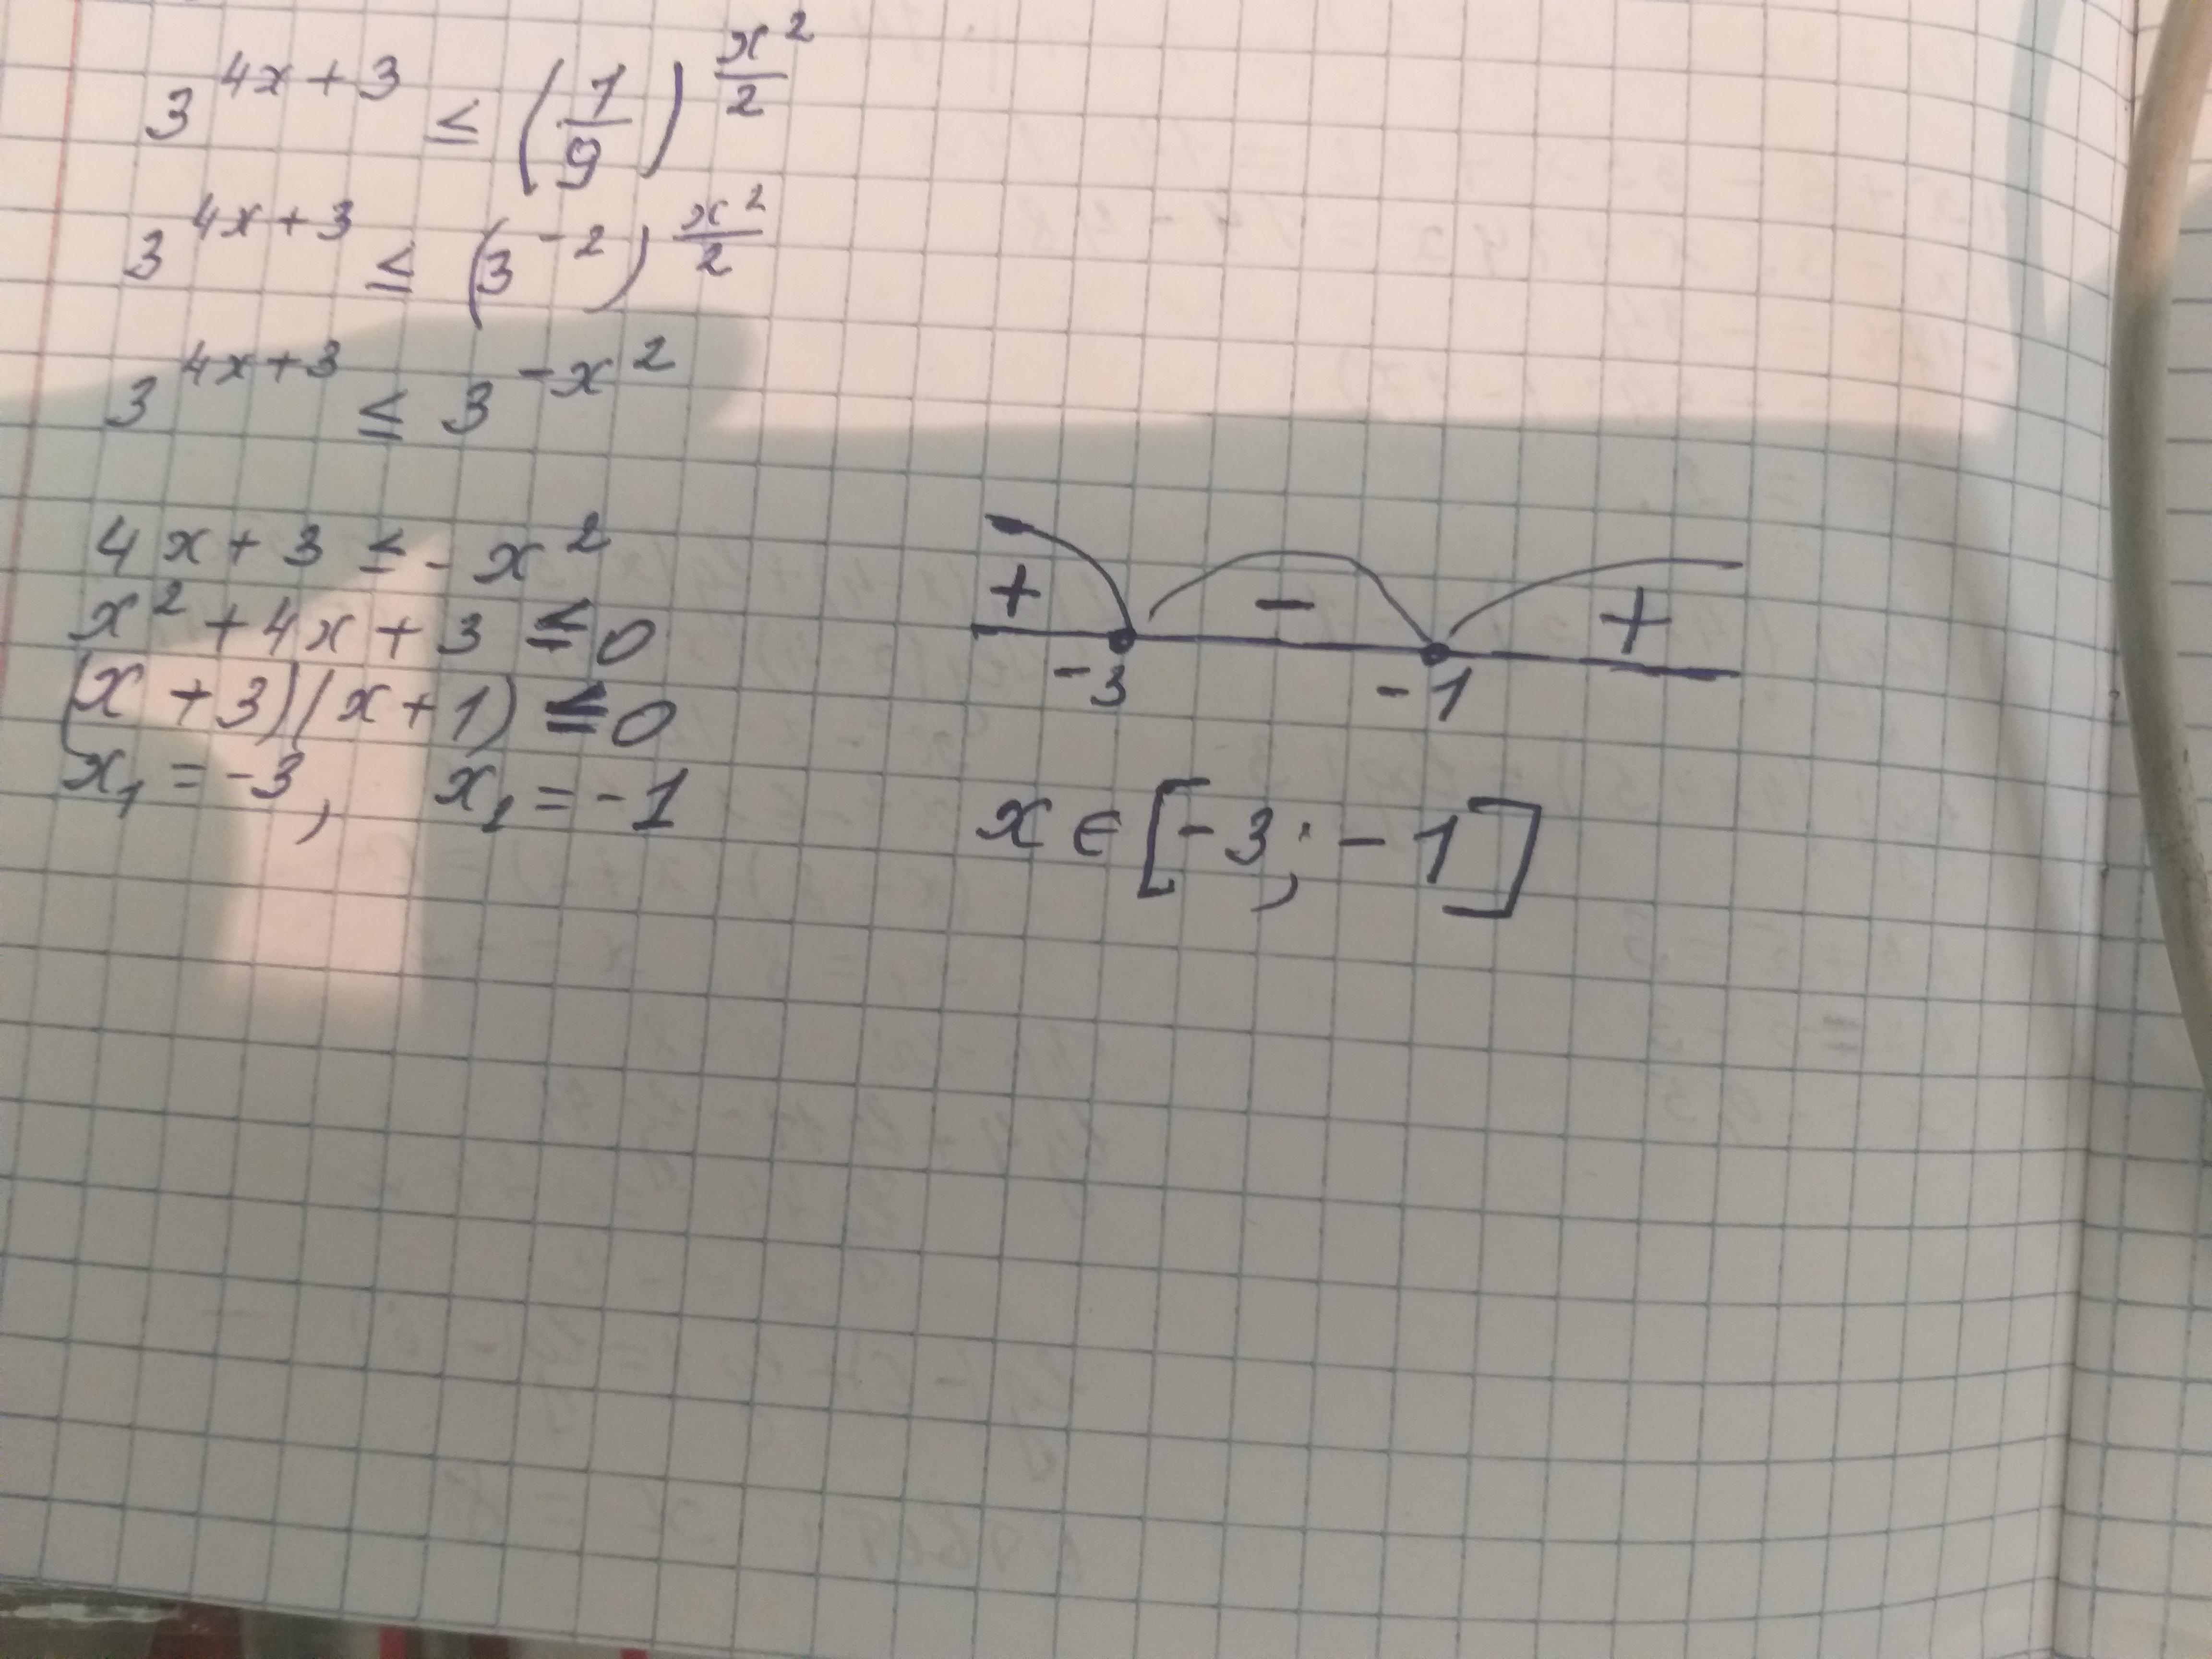 3^{4x+3} ≤ (1/9)^{x²/2}
3^{4x+3} ≤ (3^{-2})^{x²/2}
3^{4x+3} ≤ 3^{-x²}
4x+3 ≤ -x²
x²+4x+3 ≤ 0
(x+3)(x+1) ≤ 0
x₁ = -3, x₂ = -1
+ - +
-3 -1
x ∈ [-3; -1]